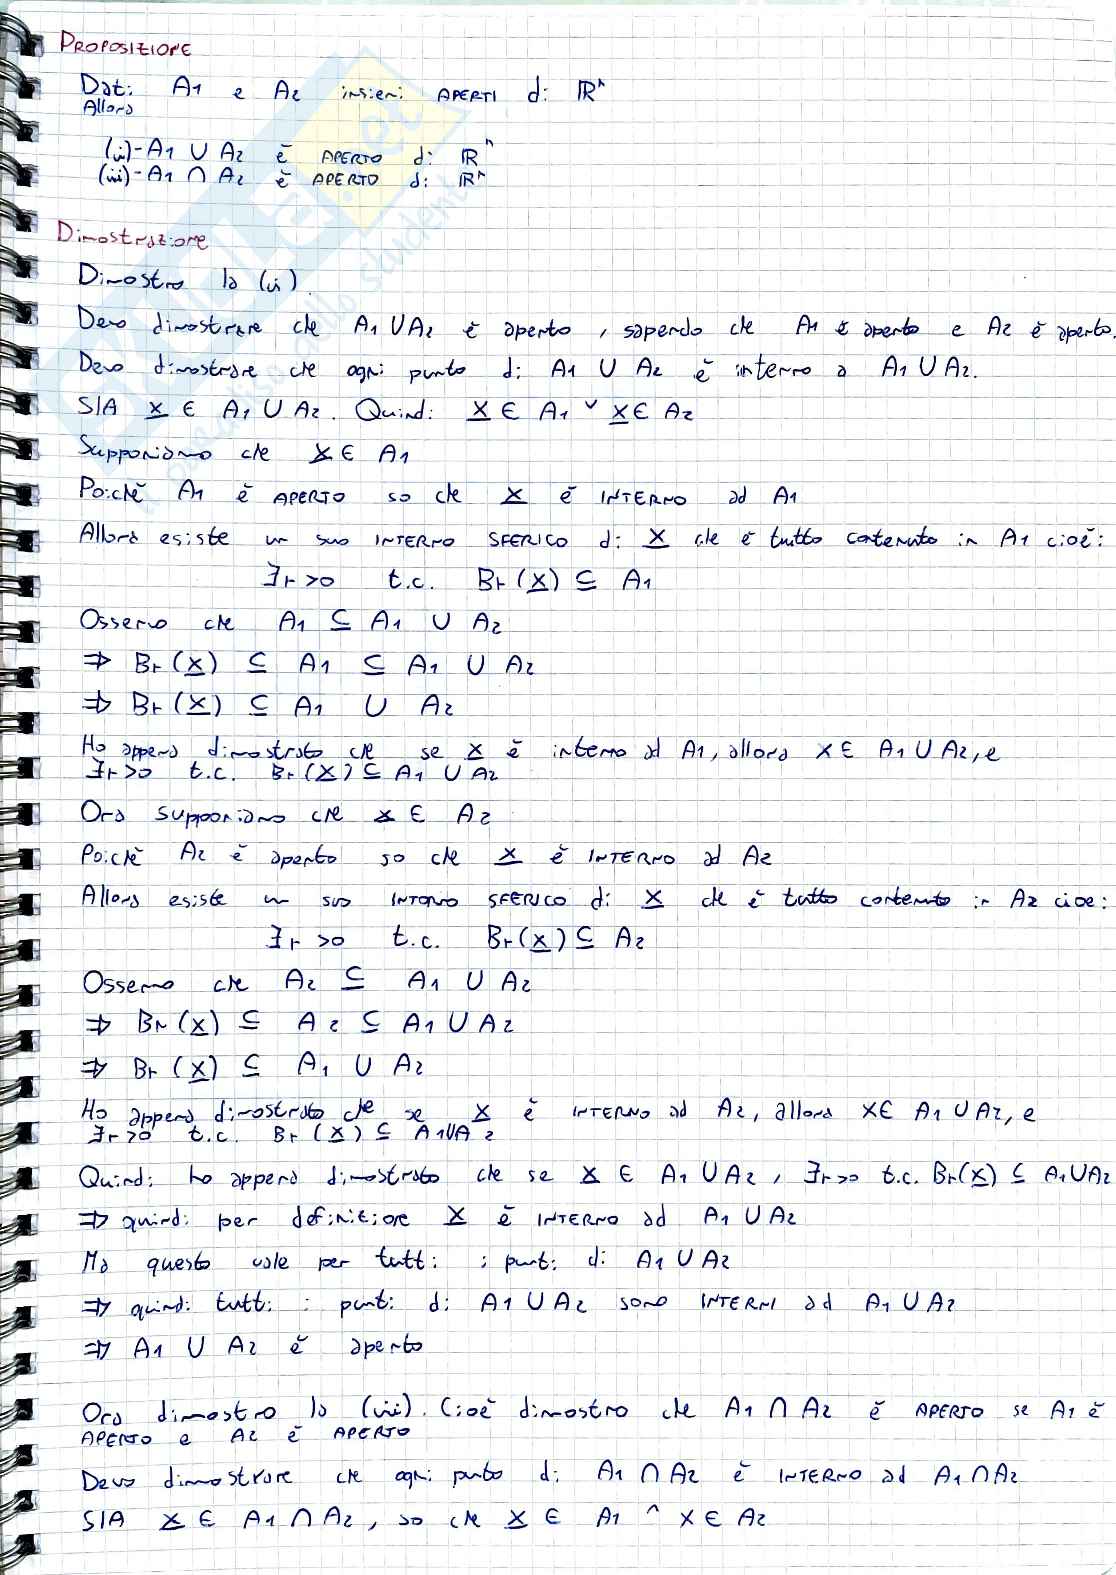 PROPOSIZIONE
Dati A1 e A2 insiemi APERTI di ℝⁿ
Allora
(ii)-A1 ∪ A2 è APERTO di ℝⁿ
(iii)-A1 ∩ A2 è APERTO di ℝⁿ
Dimostrazione
Dimostro la (ii)
Devo dimostrare che A1 ∪ A2 è aperto, sapendo che A1 è aperto e A2 è aperto.
Devo dimostrare che ogni punto di A1 ∪ A2 è interno a A1 ∪ A2.
SIA x ∈ A1 ∪ A2. Quindi x ∈ A1 ∨ x ∈ A2
Supponiamo che x ∈ A1
Poichè A1 è APERTO so che x è INTERNO ad A1
Allora esiste un suo INTERNO SFERICO di x che è tutto contenuto in A1 cioè:
∃r>0 t.c. Br(x) ⊆ A1
Osservo che A1 ⊆ A1 ∪ A2
⇒ Br(x) ⊆ A1 ⊆ A1 ∪ A2
⇒ Br(x) ⊆ A1 ∪ A2
Ho appena dimostrato che se x è interno ad A1, allora x ∈ A1 ∪ A2, e
∃r>0 t.c. Br(x) ⊆ A1 ∪ A2
Ora supponiamo che x ∈ A2
Poichè A2 è aperto so che x è INTERNO ad A2
Allora esiste un suo INTORNO SFERICO di x che è tutto contenuto in A2 cioe:
∃r>0 t.c. Br(x) ⊆ A2
Osservo che A2 ⊆ A1 ∪ A2
⇒ Br(x) ⊆ A2 ⊆ A1 ∪ A2
⇒ Br(x) ⊆ A1 ∪ A2
Ho appena dimostrato che se x è INTERNO ad A2, allora x ∈ A1 ∪ A2, e
∃r>0 t.c. Br(x) ⊆ A1∪A2
Quindi ho appena dimostrato che se x ∈ A1 ∪ A2, ∃r>0 t.c. Br(x) ⊆ A1∪A2
⇒ quindi per definizione x è INTERNO ad A1 ∪ A2
Ma questo vale per tutti i punti di A1 ∪ A2
⇒ quindi tutti i punti di A1 ∪ A2 sono INTERNI ad A1 ∪ A2
⇒ A1 ∪ A2 è aperto
Ora dimostro la (iii). Cioè dimostro che A1 ∩ A2 è APERTO se A1 è
APERTO e A2 è APERTO
Devo dimostrare che ogni punto di A1 ∩ A2 è INTERNO ad A1∩A2
SIA x ∈ A1 ∩ A2, so che x ∈ A1 ∧ x ∈ A2